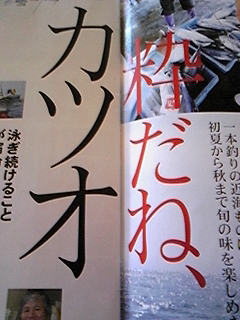 一本釣りの近海もの
初夏から秋まで旬の味を楽しめ
粋だね、
カツオ
泳ぎ続けること
が宿